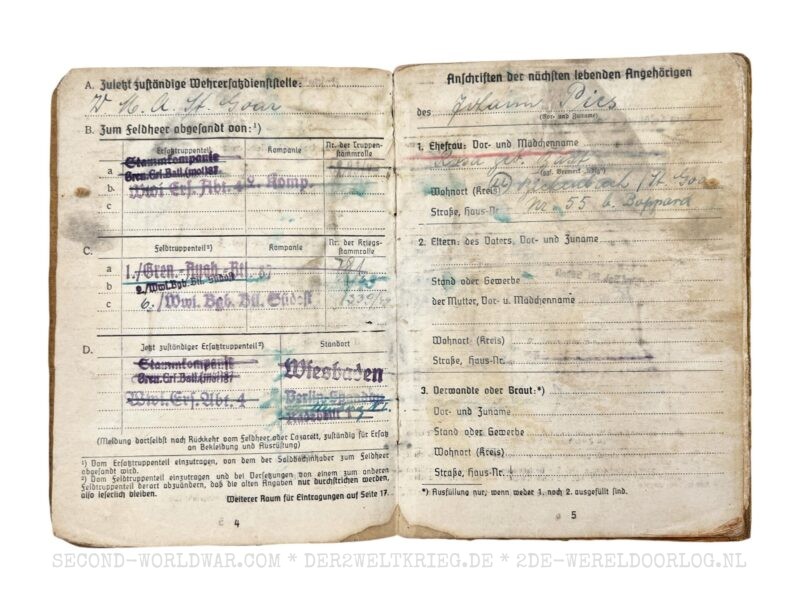 A. Zuletzt zuständige Wehrersatzdienststelle:
W. M. A. St. Goar
B. Zum Feldheer abgesandt von:¹)
Ersatztruppenteil Kompanie Nr. der Truppen-stammrolle
a Stammkompanie
Gren. Ers. Batl. (mot) 87
b Wwi Ers. Abt. 4 2. Komp.
c
C. Feldtruppenteil²) Kompanie Nr. der Kriegs-stammrolle
a 1./Gren.-Ausb.-Btl. 87 781
b 2./Wwi. Bgb. Btl. Südost
c 6./Wwi. Bgb. Btl. Südost
D. Jetzt zuständiger Ersatztruppenteil²) Standort
Stammkompanie
Gren. Ers. Batl. (mot) 87 Wiesbaden
Wwi. Ers. Abt. 4 Berlin-Spandau
(Meldung dortselbst nach Rückkehr vom Feldheer oder Lazarett, zuständig für Ersatz
an Bekleidung und Ausrüstung)
¹) Vom Ersatztruppenteil einzutragen, von dem der Soldbuchinhaber zum Feldheer
abgesandt wird.
²) Vom Feldtruppenteil einzutragen und bei Versetzungen von einem zum anderen
Feldtruppenteil derart abzuändern, daß die alten Angaben nur durchstrichen werden,
also leserlich bleiben.
Weiterer Raum für Eintragungen auf Seite 17.
4
Anschriften der nächsten lebenden Angehörigen
des Johann Pies
(Vor- und Zuname)
1. Ehefrau: Vor- und Mädchenname
geb.
(ggf. Vermerk „ledig“)
Wohnort (Kreis) /St. Goar
Straße, Haus-Nr. Nr. 55 b. Boppard
2. Eltern: des Vaters, Vor- und Zuname
Stand oder Gewerbe
der Mutter, Vor- u. Mädchenname
Wohnort (Kreis)
Straße, Haus-Nr.
3. Verwandte oder Braut:*)
Vor- und Zuname
Stand oder Gewerbe
Wohnort (Kreis)
Straße, Haus-Nr.
*) Ausfüllung nur, wenn weder 1. noch 2. ausgefüllt sind.
5
SECOND-WORLDWAR.COM * DER2WELTKRIEG.DE * 2DE-WERELDOORLOG.NL